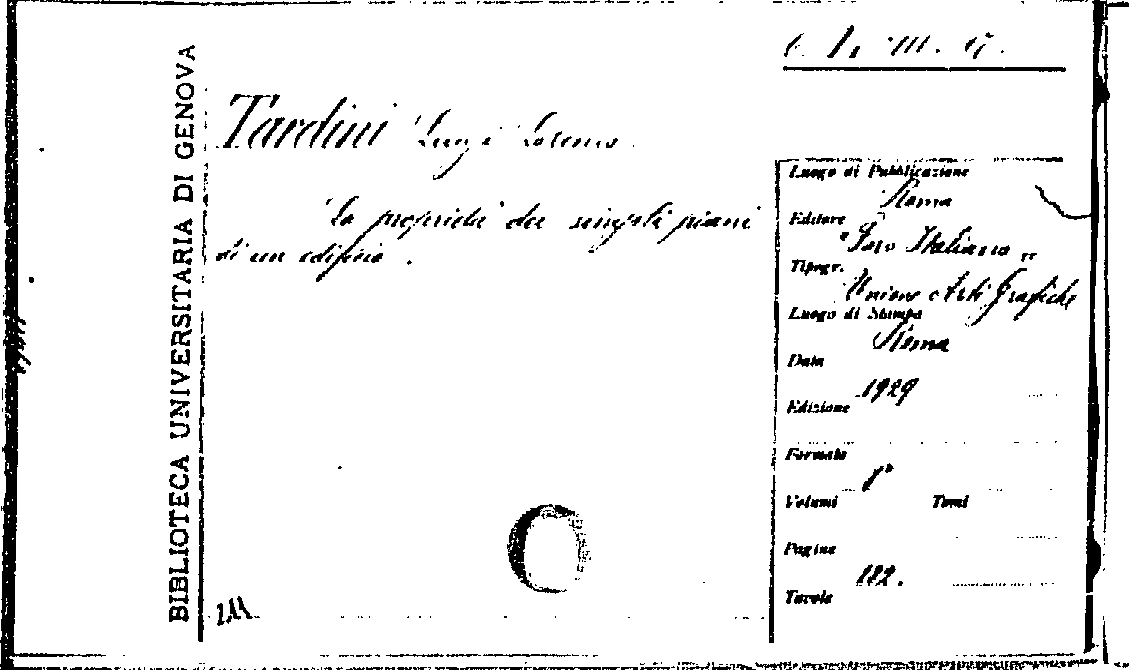 BIBLIOTECA UNIVERSITARIA DI GENOVA
Tardini Luigi Lorenzo
La proprietà dei singoli piani
di un edificio.
Luogo di Pubblicazione
Roma
Editore
"Foro Italiano"
Tipogr.
Unione Arti Grafiche
Luogo di Stampa
Roma
Data
1929
Edizione
Formato
8°
Volumi Tomi
Pagine
182.
Tavole